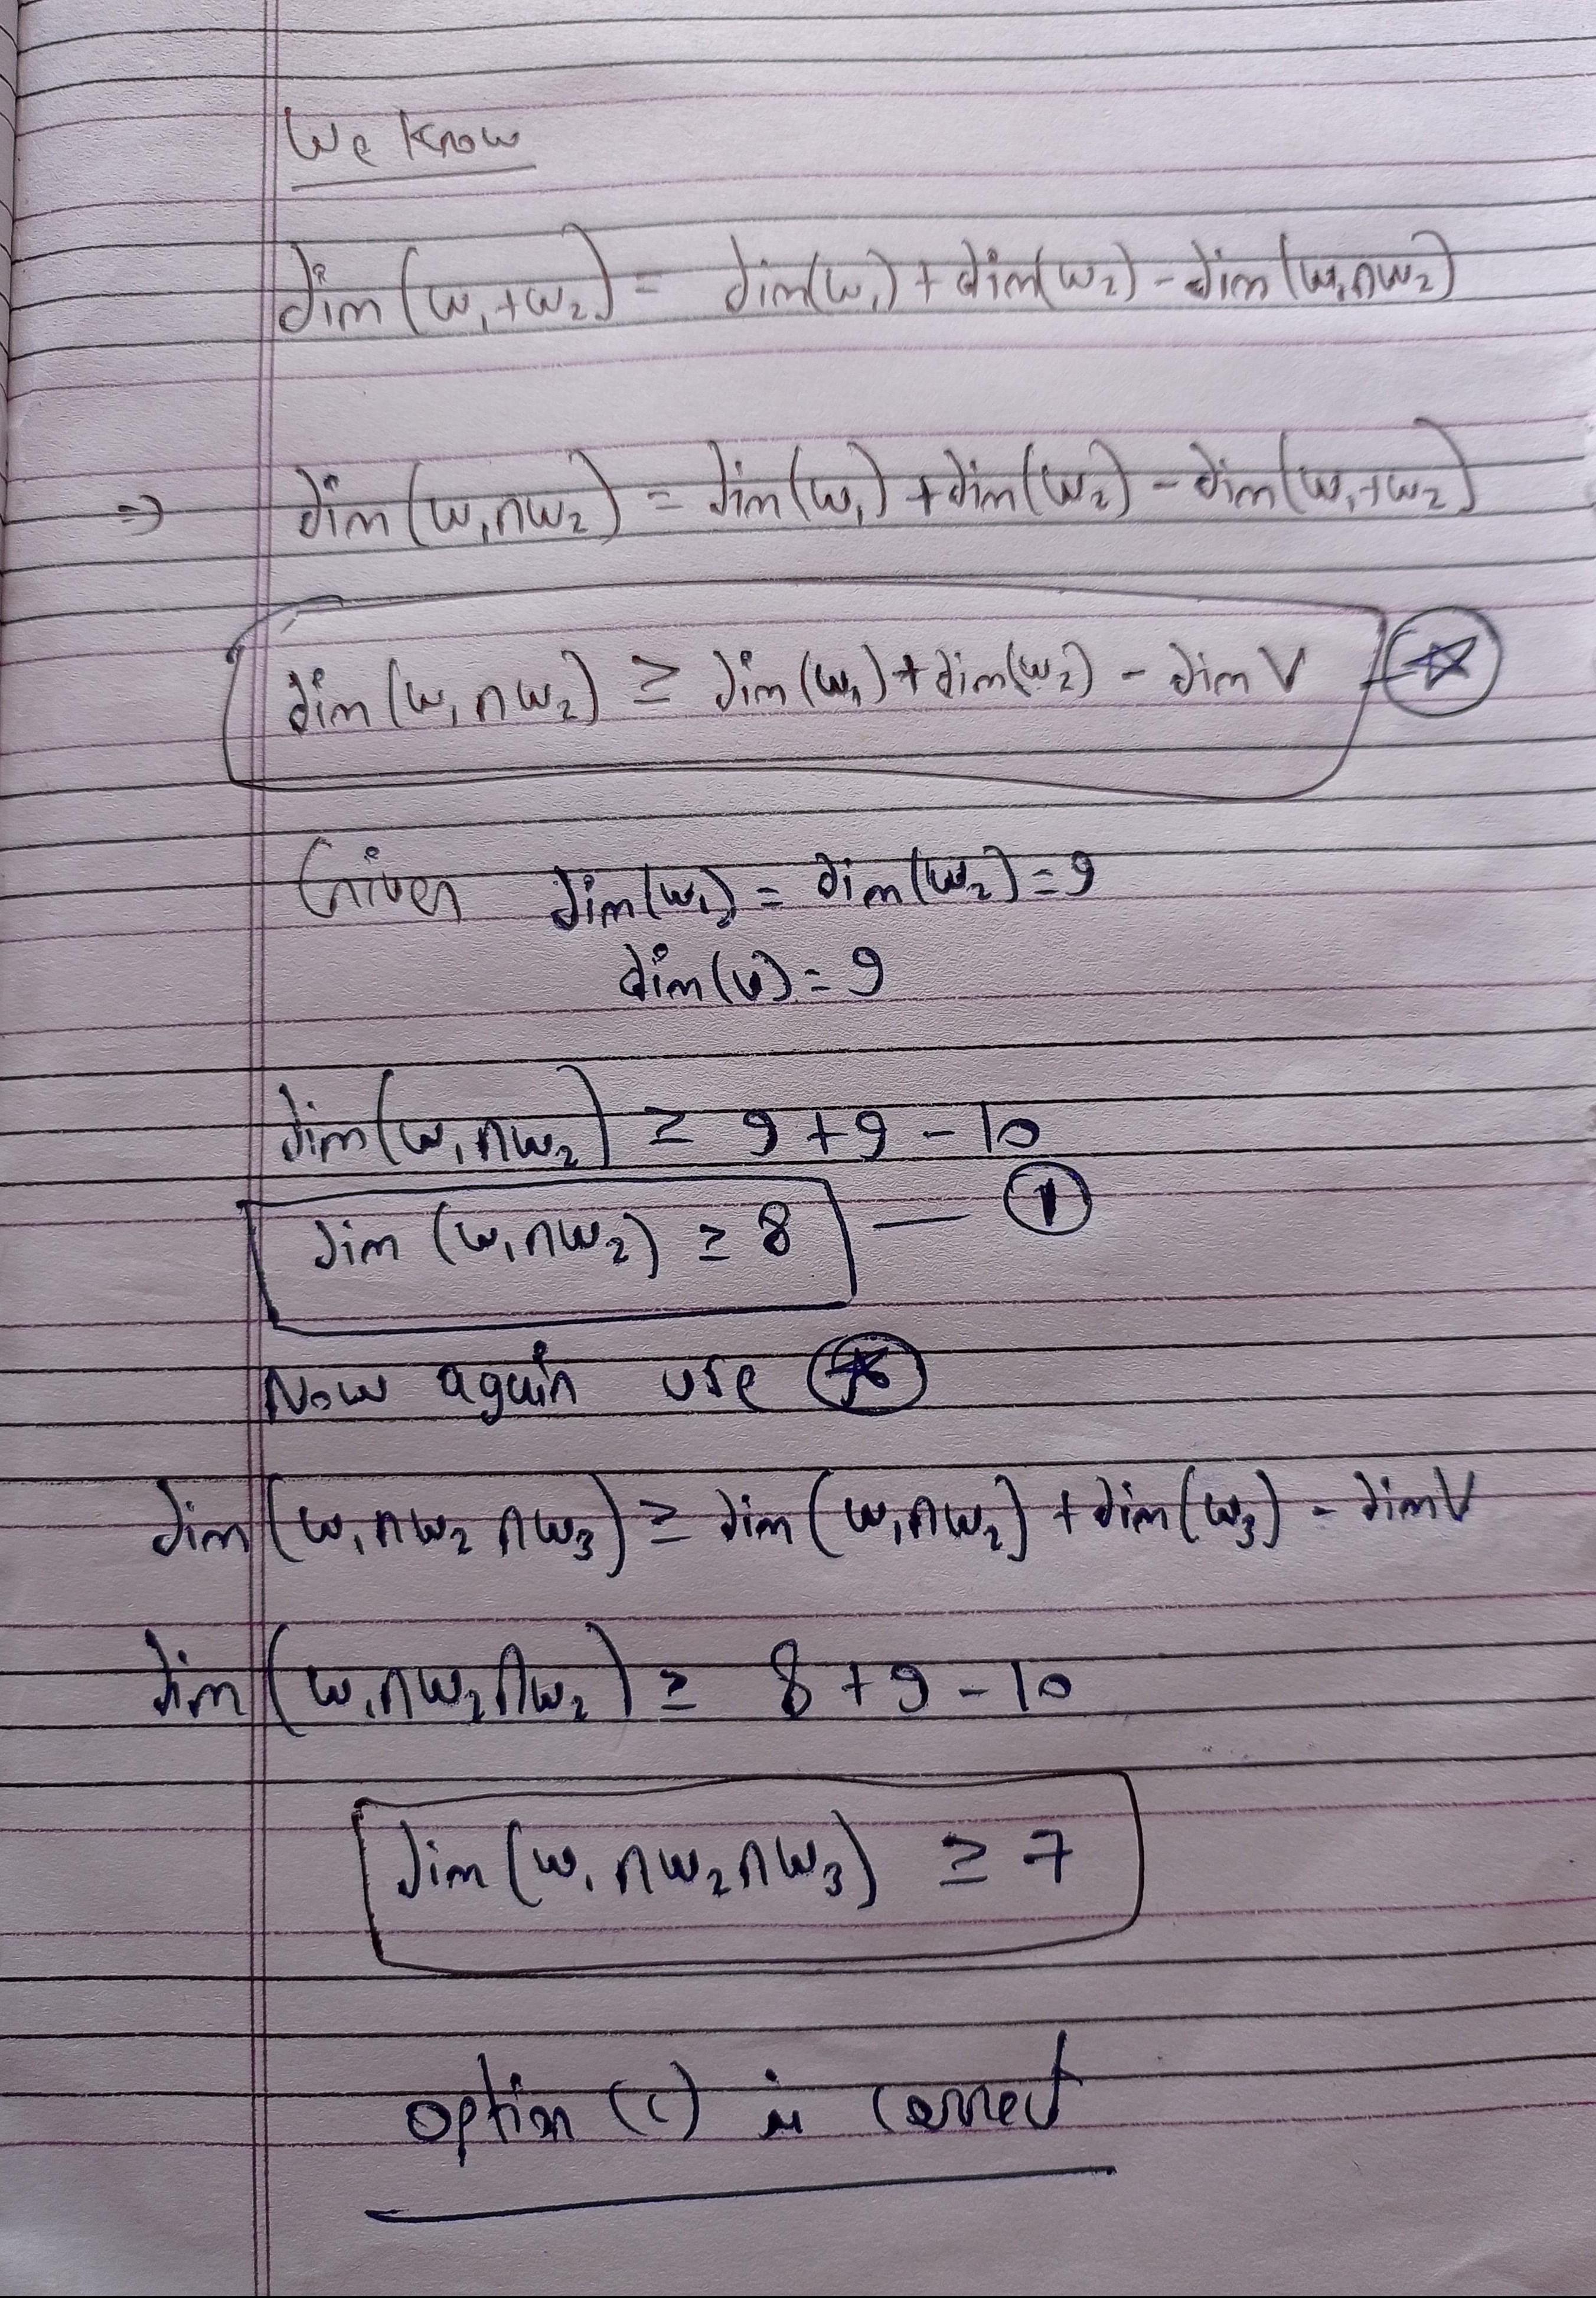 We Know
dim (w₁+w₂) = dim(w₁) + dim(w₂) - dim (w₁∩w₂)
⇒ dim (w₁∩w₂) = dim(w₁) + dim(w₂) - dim(w₁+w₂)
dim (w₁∩w₂) ≥ dim (w₁) + dim(w₂) - dim V - ☆
Given dim(w₁) = dim(w₂) = 9
dim(v) = 9
dim(w₁∩w₂) ≥ 9 + 9 - 10
dim (w₁∩w₂) ≥ 8 — ①
Now again use ☆
dim (w₁∩w₂∩w₃) ≥ dim (w₁∩w₂) + dim (w₃) - dim V
dim (w₁∩w₂∩w₂) ≥ 8 + 9 - 10
dim (w₁∩w₂∩w₃) ≥ 7
option (c) is correct